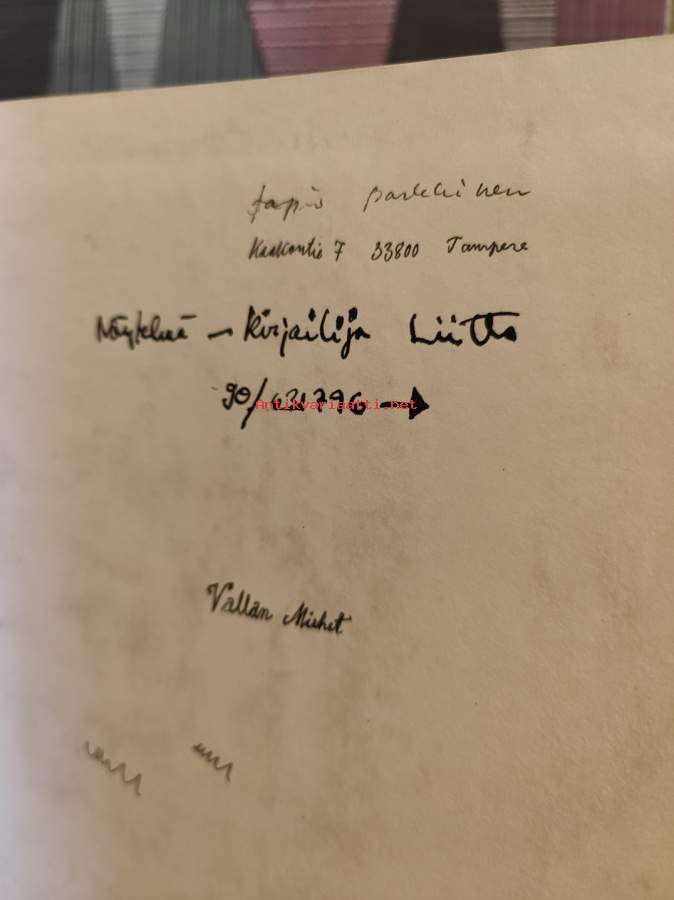 Tapio Parkkinen
Kaakontie 7 33800 Tampere
Näytelmä - Kirjailija Liitto
90/
Antikvariaatti.net
Vallan Miehet